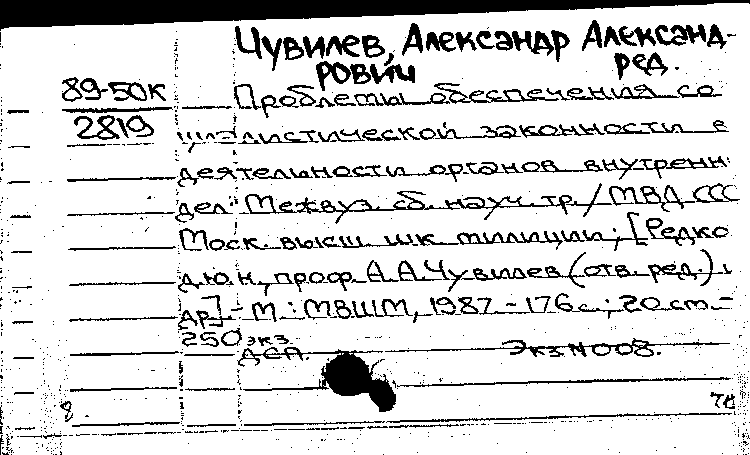 Чувилев, Александр Александ-
рович ред.
89-50К
2819
Проблемы обеспечения со
циалистической законности в
деятельности органов внутренн.
дел: Межвуз. сб. науч. тр./МВД ССС
Моск. высш. шк. милиции; [Редко
д.ю.н., проф. А.А.Чувилев (отв. ред.) и
др]. - М.: МВШМ, 1987. - 176с.; 20 см. -
250 экз.
ДСП. Экз N 008.
8.